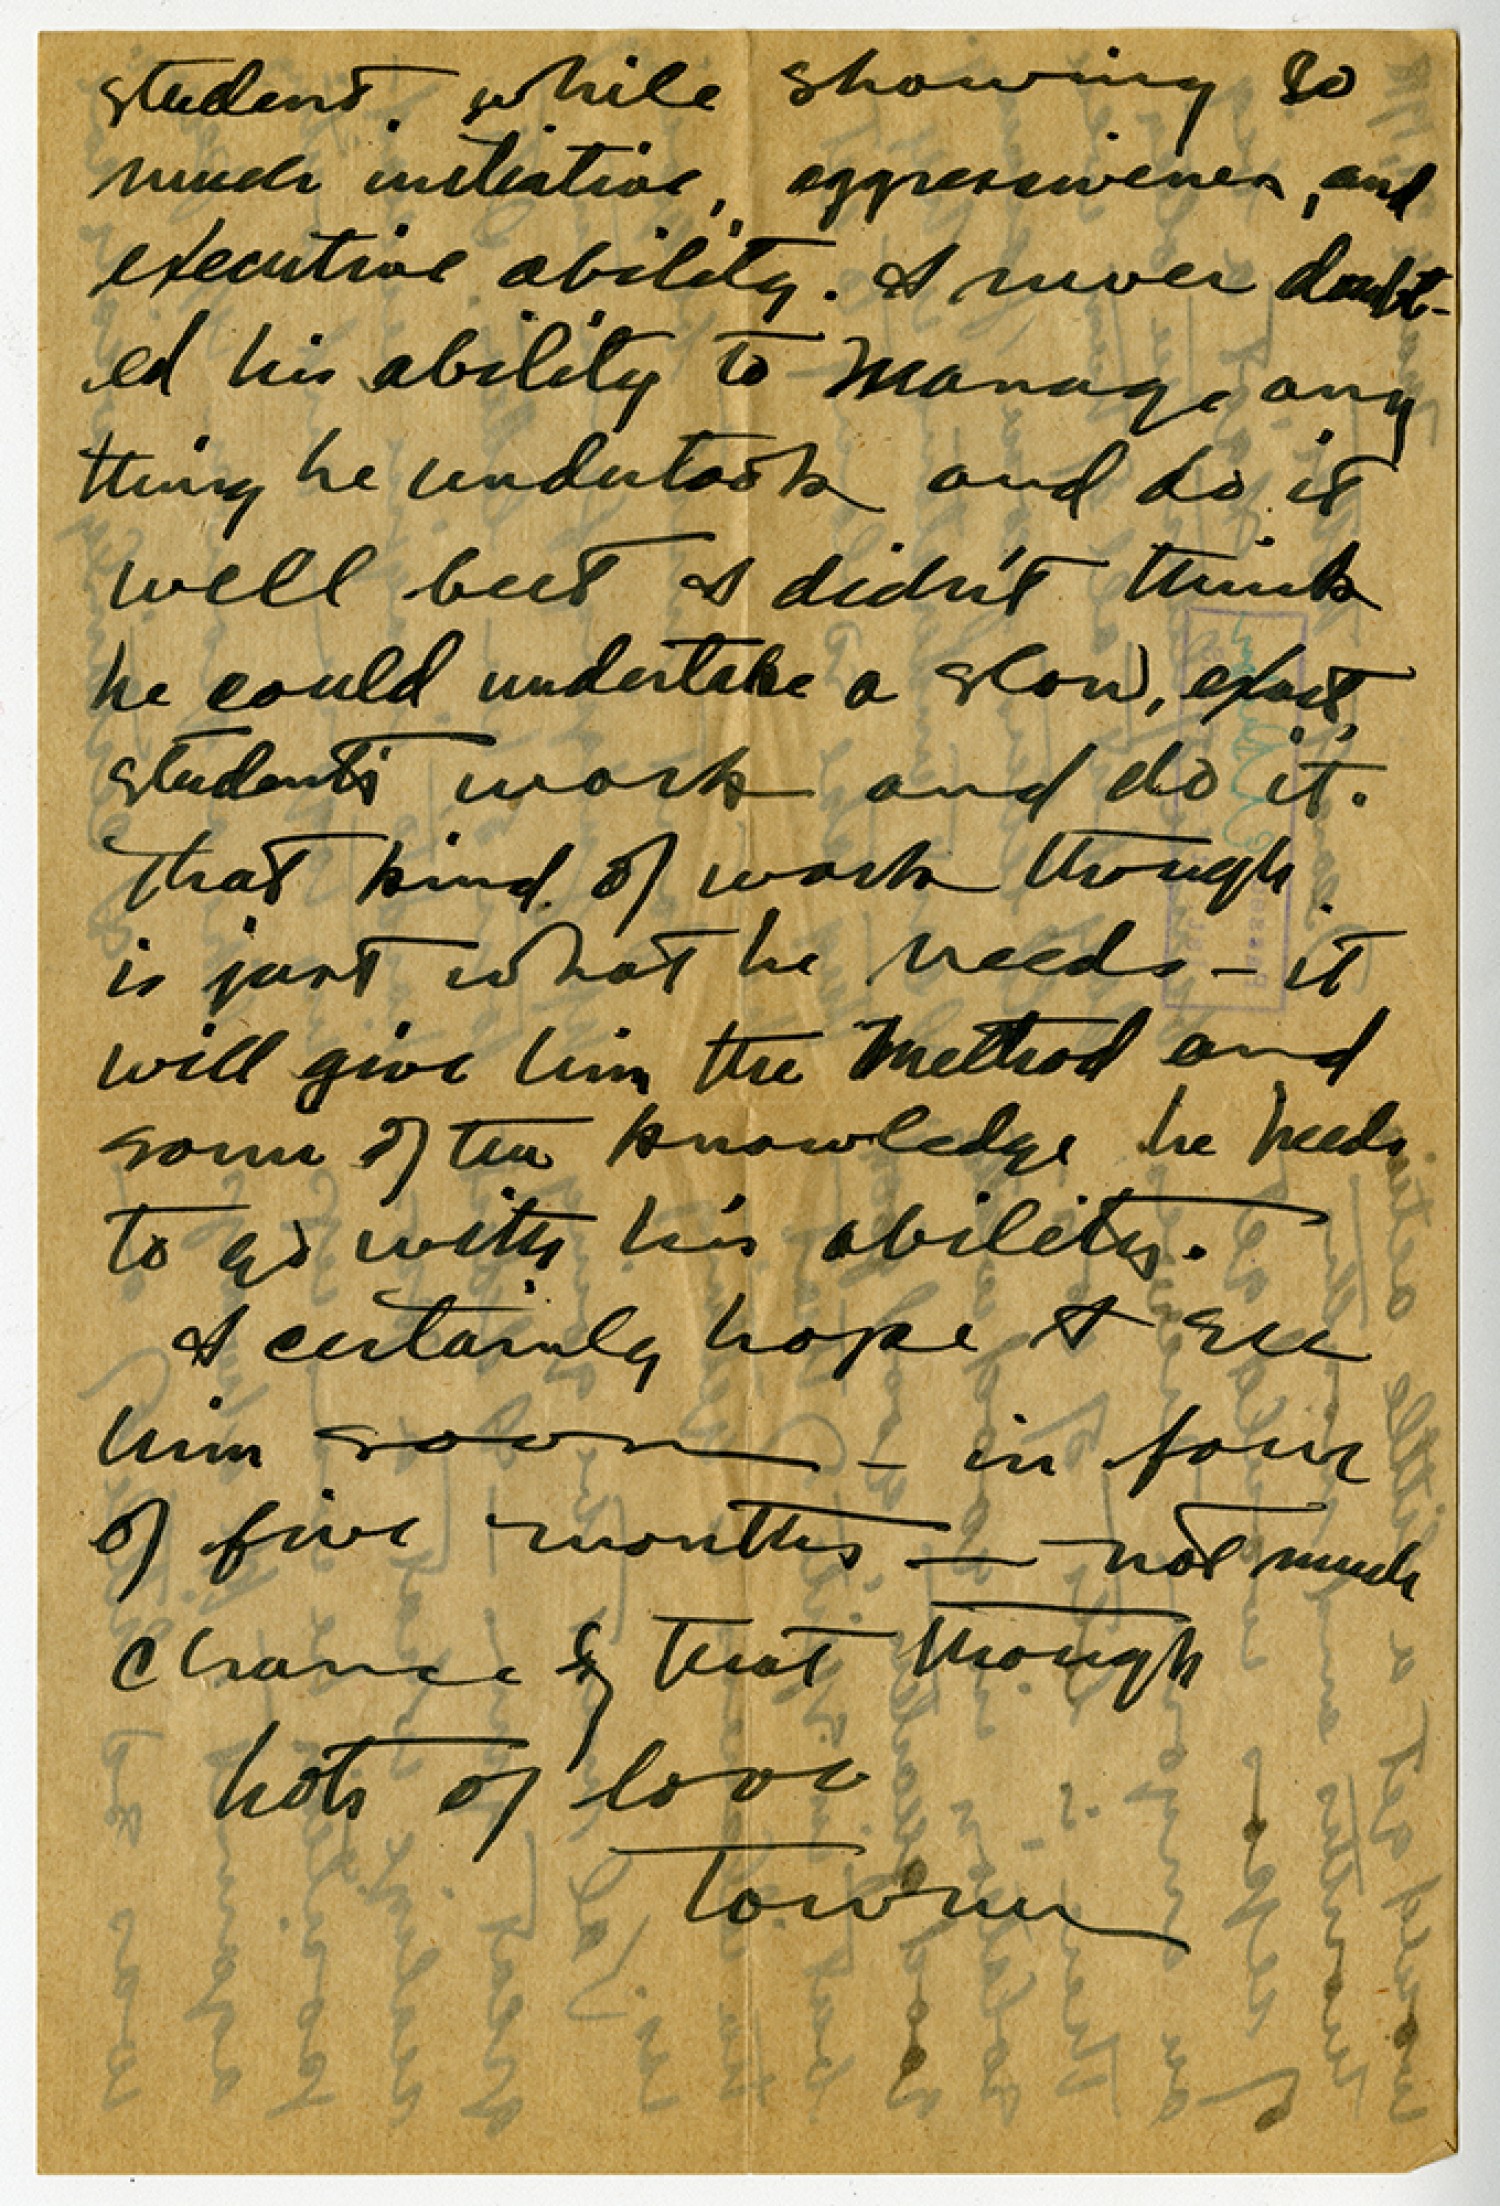 student, while showing so
much initiative, aggressiveness, and
executive ability. I never doubt-
ed his ability to manage any
thing he undertook and do it
well but I didn't think
he could undertake a slow, exact,
students work and do it.
That kind of work though
is just what he needs – it
will give him the method and
some of the knowledge he needs
to go with his ability.
I certainly hope I see
him soon – in four
of five months — not much
chance of that though
Lots of love
Towner